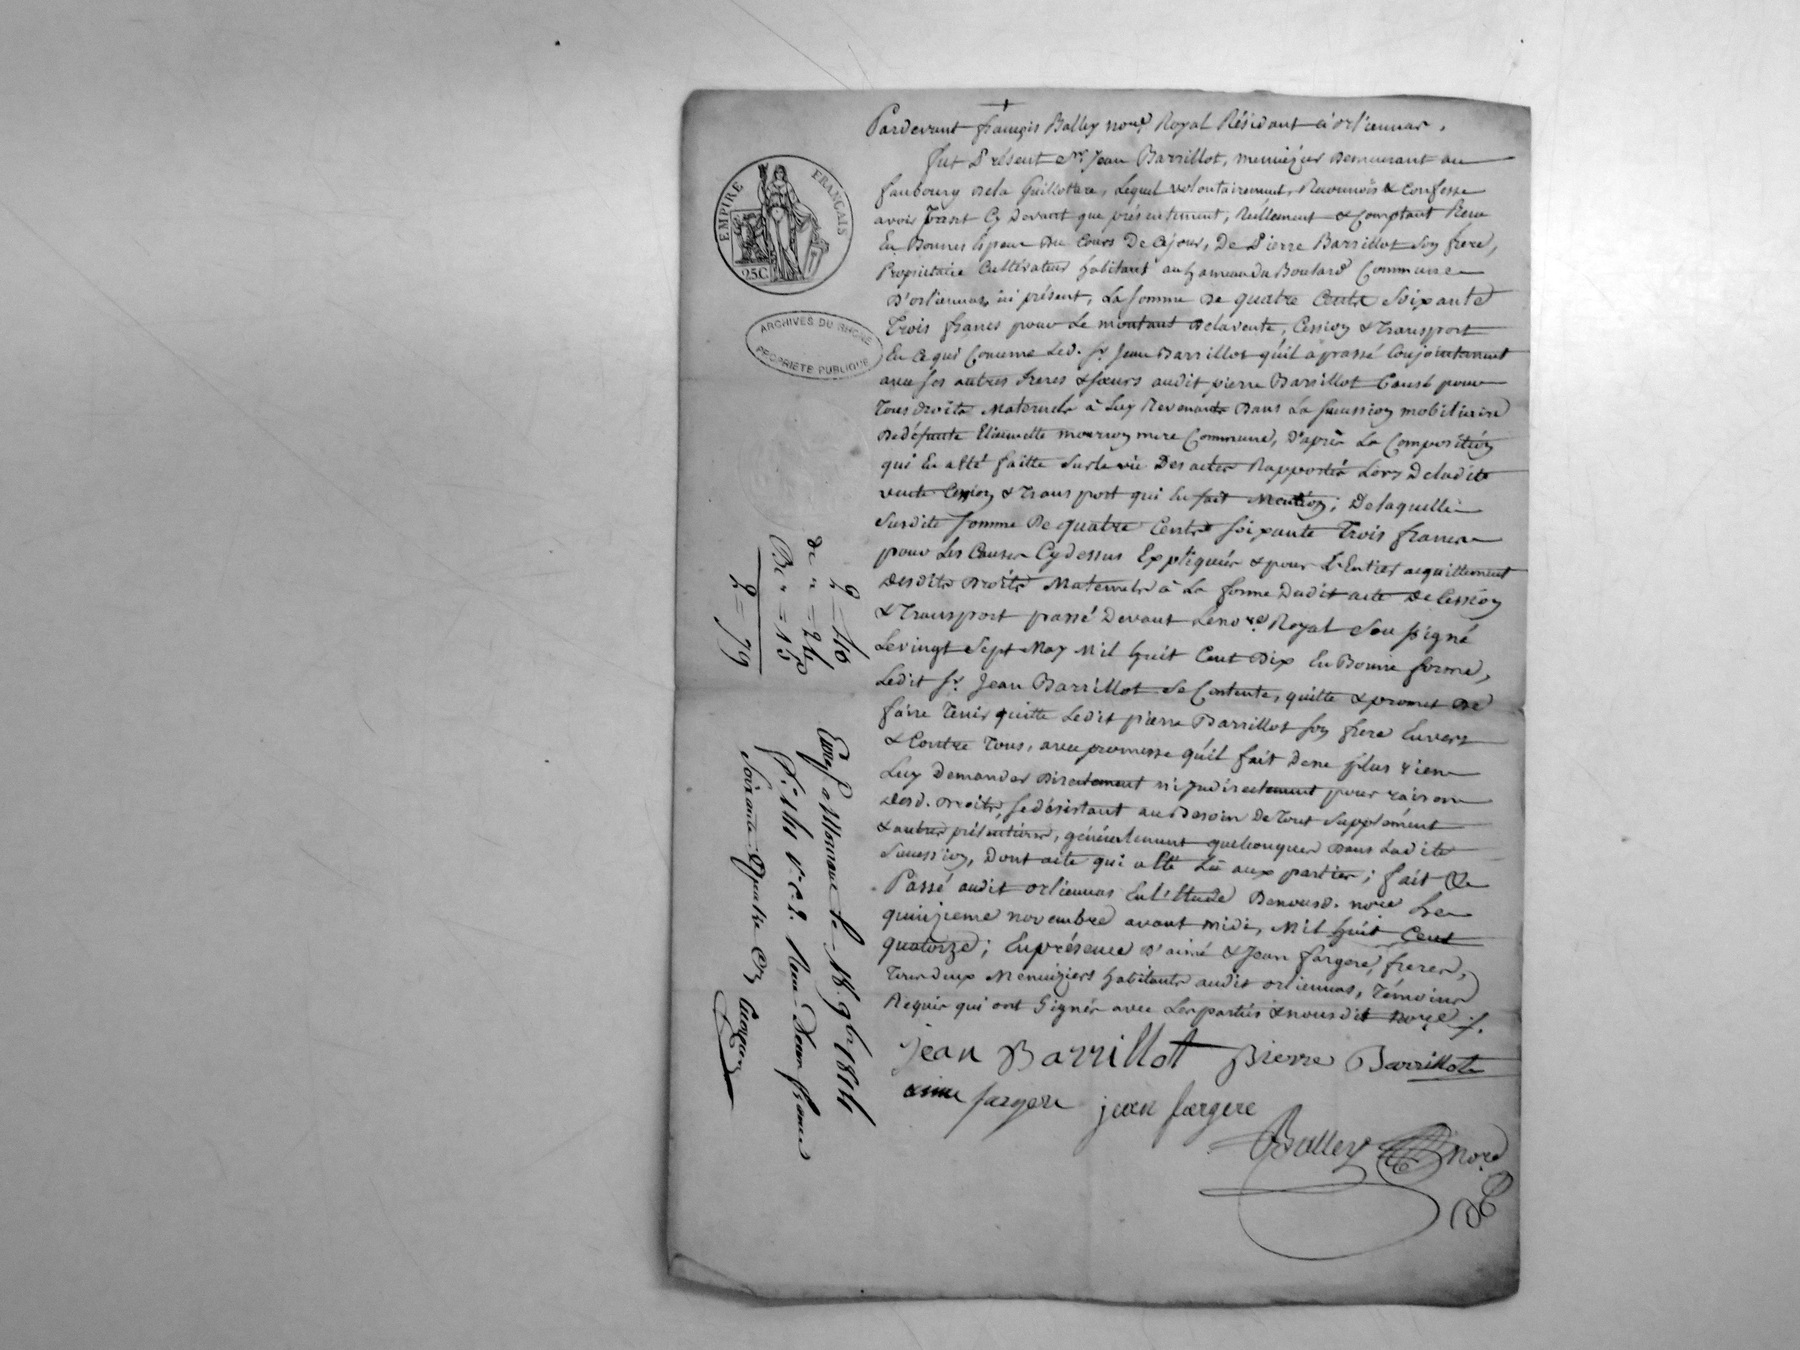 Pardevant françois Balley nore Royal Résidant à orliennas,
fut Présent sr. Jean Barrillot, menuizier demeurant au
faubourg dela Guillotiere, Lequel volontairement, Reconnois & Confesse
avoir tant Cy devant que présentement, Réellement & Comptant Reçu
En Bonnes Espèces du Cours De cejour, De Pierre Barrillot Son frere,
Proprietaire Cultivateur habitant au hameau du Boulard Commune
D'orliennas, ici présent, La somme de quatre Cents Soixante
Trois francs pour Le montant delavente, Cession & Transport
En ce qui Concerne Led. Sr. Jean Barrillot qu'il a passé Conjointement
avec ses autres freres & sœurs audit pierre Barrillot Causé pour
Tous droits Maternels à Luy Revenants Dans La Succession mobiliaire
de défunte mere Commune, D'après La Composition
qui En a Eté faitte sur le vû Des actes Rapportés Lors De ladite
vente Cession & Transport qui En fait Mention; De laquelle
Susdite somme De quatre Cents soixante Trois francs
pour Les Causes Cy dessus Expliquées & pour L'Entier acquittement
desdits Droits Maternels à La forme Dudit acte De Cession
& Transport passé Devant Le nore Royal Sousigné
Le vingt Sept May Mil huit Cent Dix En Bonne forme,
Ledit Sr. Jean Barrillot Se Contente, quitte & promet De
faire Tenir quitte Ledit pierre Barrillot son frere Envers
& Contre Tous, avec promesse qu'il fait De ne plus rien
Luy Demander Directement ni Indirectement pour raison
desd. droits, se désistant au Besoin De Tout Supplément
& autres prétentions, généralement quelconques Dans Ladite
Succession, Dont acte qui a Eté Lû aux parties; fait &
Passé audit orliennas En l'Etude De nousd. nore Le
quinzieme novembre avant midi, Mil huit Cent
quatorze; En présence D'aimé & Jean fargere, freres,
Tous deux Menuiziers habitants audit orliennas, Témoins
Requis qui ont Signés avec Les parties & nousdit nore ./.
Jean Barrillott Pierre Barrillot
aimé fargere jean fargere
Balley nore
EMPIRE FRANÇAIS
25C
ARCHIVES DU RHONE
PROPRIÉTÉ PUBLIQUE
2 = 40
de " = 24
Be " = 15
2 = 79
Enregé à Mornant le 18 9bre 1814
fo 146 vo c 2. Reçu Deux francs
Soixante Quatre Cs